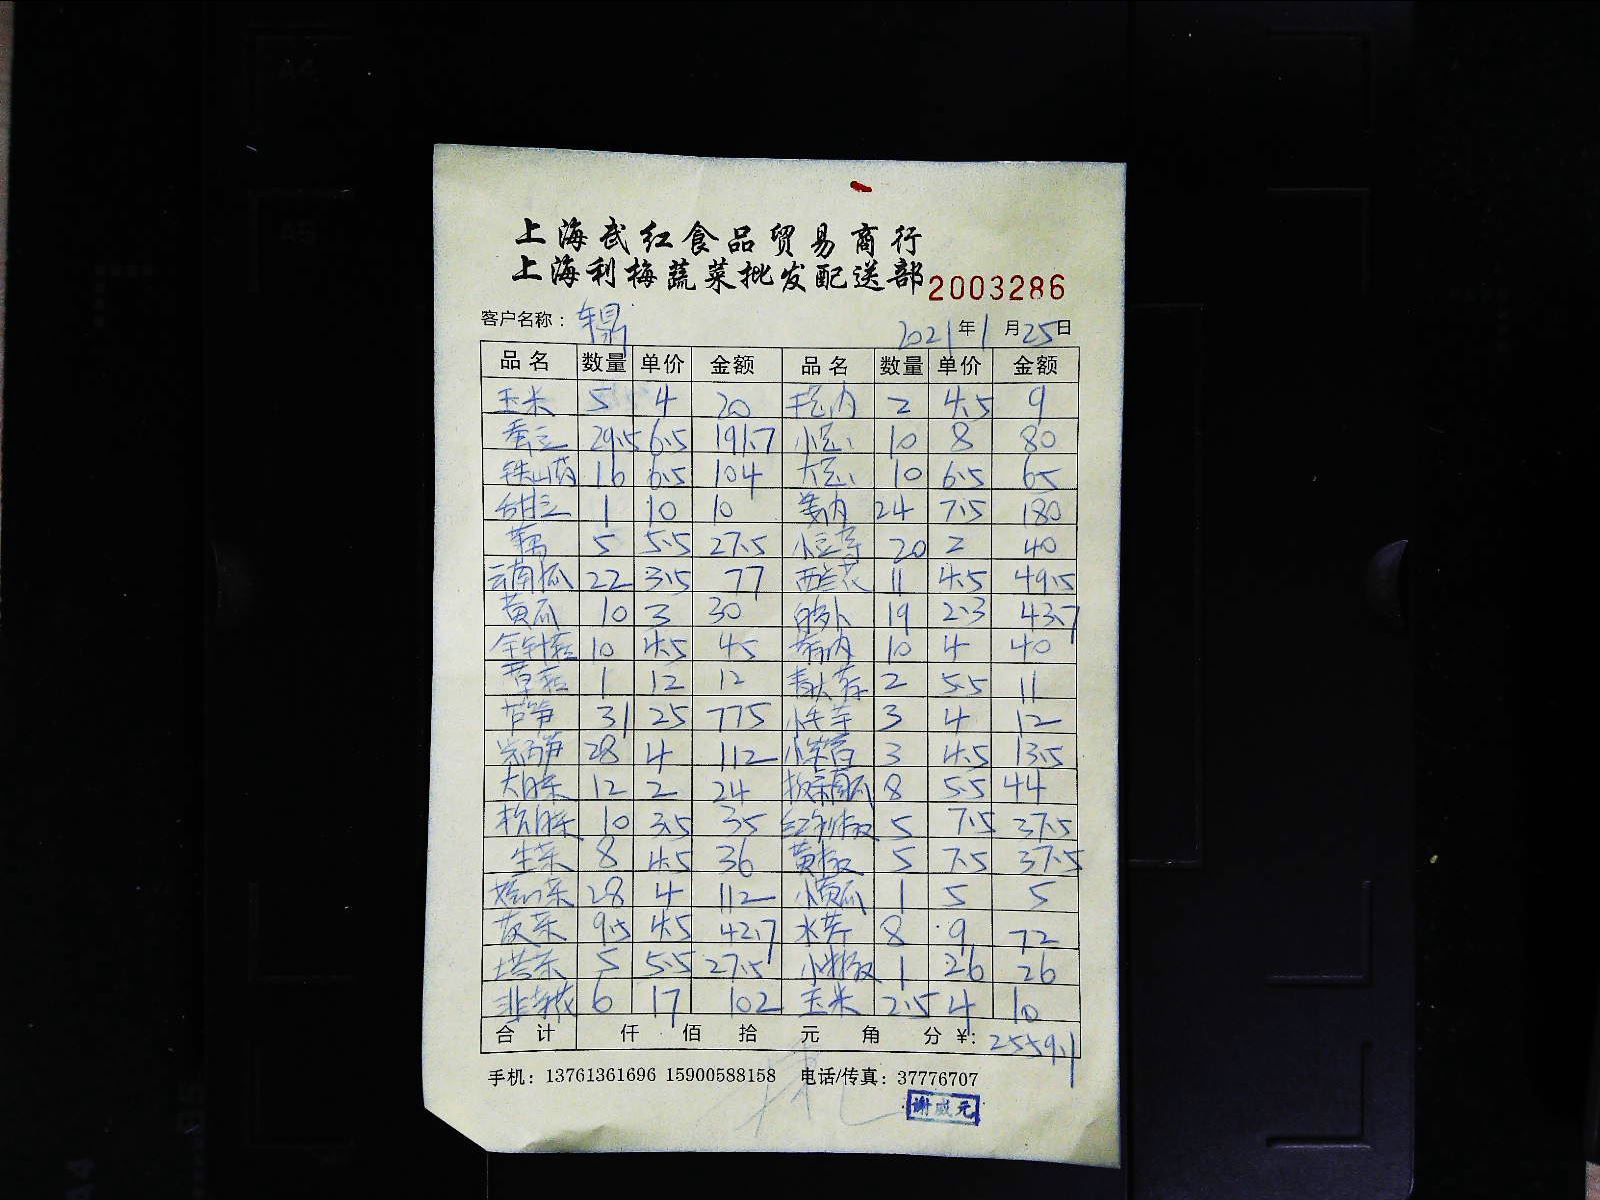 上海武红食品贸易商行
上海利梅蔬菜批发配送部 2003286
客户名称： 2021年1月25日
品名 数量 单价 金额 品名 数量 单价 金额
玉米 5 4 20 毛豆肉 2 4.5 9
29.5 6.5 191.7 小 10 8 80
铁山药 16 6.5 104 大 10 6.5 65
甜豆 1 10 10 24 7.5 180
藕 5 5.5 27.5 小豆芽 20 2 40
云南瓜 22 3.5 77 西兰花 11 4.5 49.5
黄瓜 10 3 30 白萝卜 19 2.3 43.7
金针菇 10 4.5 45 10 4 40
草菇 1 12 12 2 5.5 11
芦笋 31 25 775 3 4 12
28 4 112 3 4.5 13.5
大白菜 12 2 24 板栗南瓜 8 5.5 44
杭白菜 10 3.5 35 红尖椒 5 7.5 37.5
生菜 8 4.5 36 黄椒 5 7.5 37.5
28 4 112 小黄瓜 1 5 5
菠菜 9.5 4.5 42.7 水芹 8 9 72
塔菜 5 5.5 27.5 小米椒 1 26 26
韭菜花 6 17 102 玉米 2.5 4 10
合计 仟 佰 拾 元 角 分 ¥: 2559.1
手机：13761361696 15900588158 电话/传真：37776707
谢威元